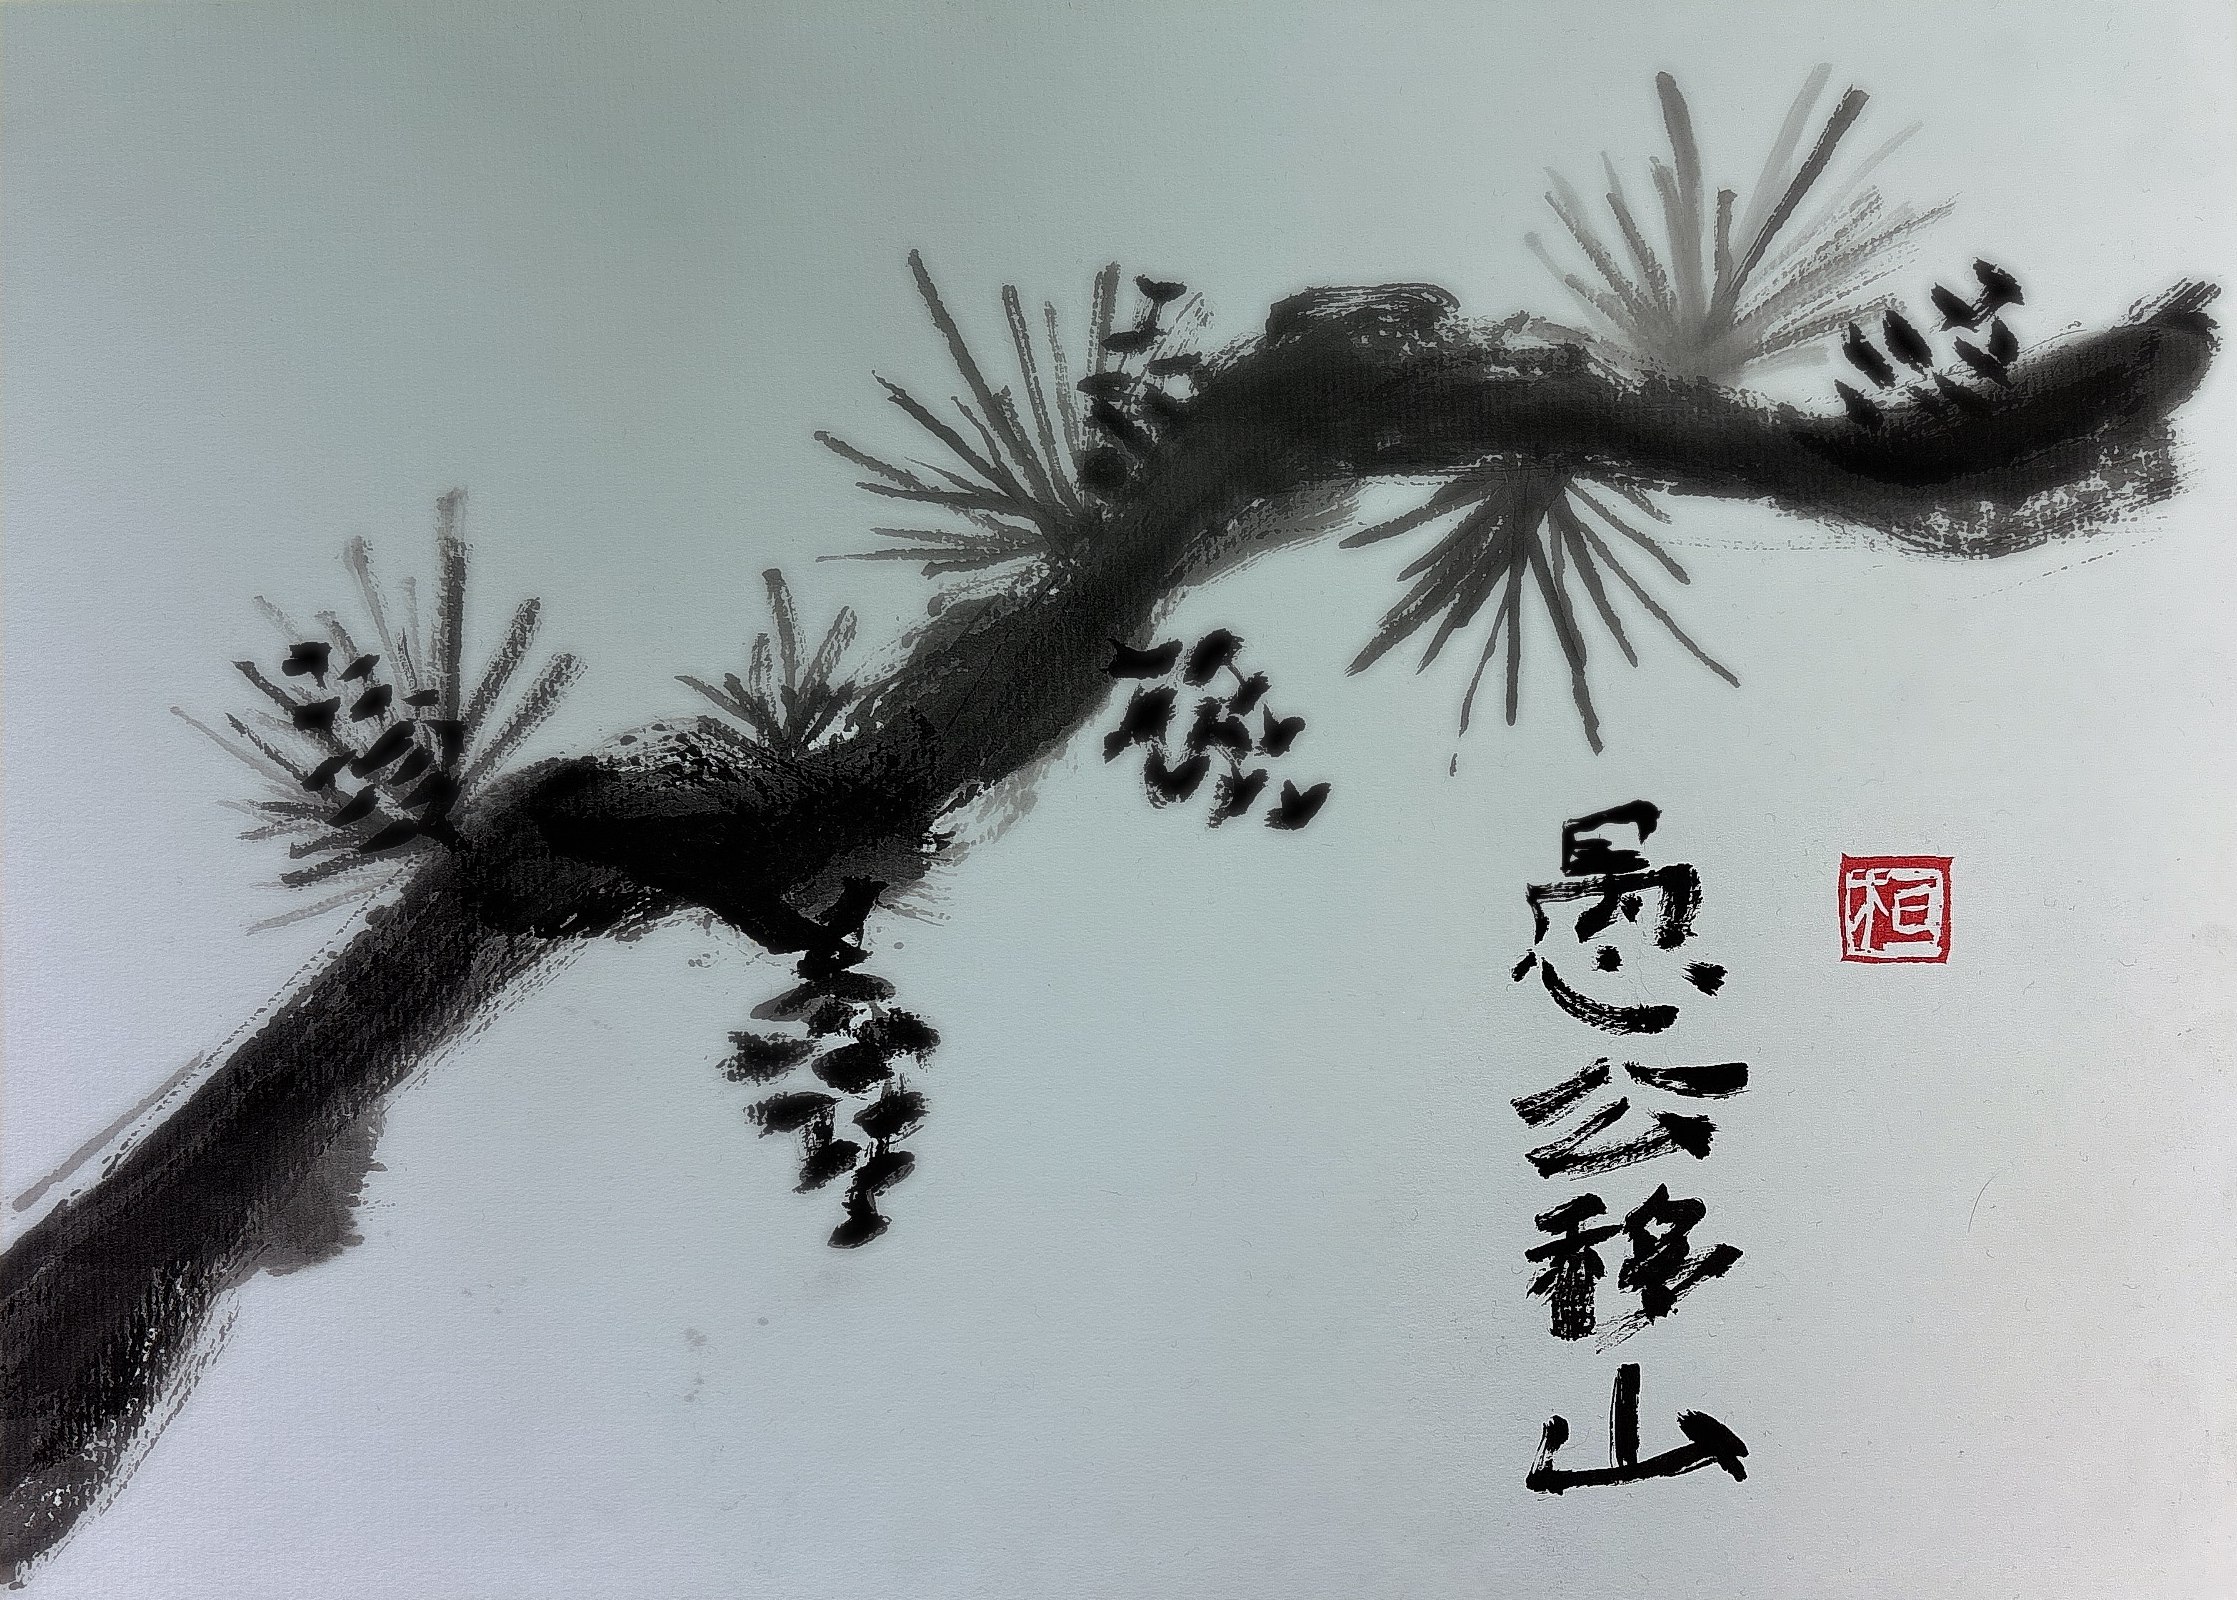 愚公移山
桓